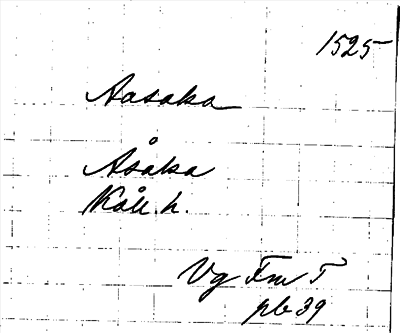 1525
Aasaka
Åsaka
Kåk. h.
Vg Fm T
pb 39